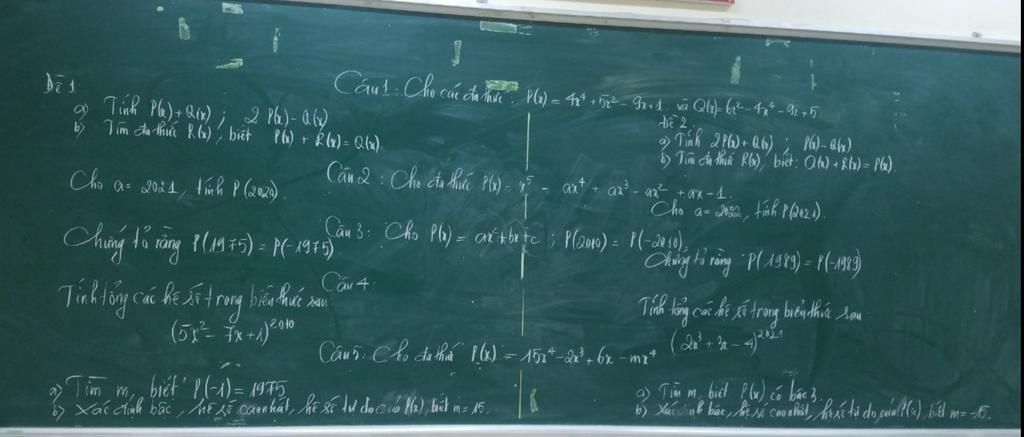 Câu 1: Cho các đa thức: P(x) = 4x⁴ + 5x² - 9x + 1 và Q(x) = 6x² - 4x⁴ - 9x + 5
Đề 1
a) Tính P(x) + Q(x) ; 2P(x) - Q(x)
b) Tìm đa thức R(x), biết P(x) + R(x) = Q(x).
Đề 2
a) Tính 2P(x) + Q(x) ; P(x) - Q(x)
b) Tìm đa thức R(x), biết: Q(x) + R(x) = P(x).
Câu 2: Cho đa thức P(x) = x⁵ - ax⁴ + ax³ - ax² + ax - 1.
Cho a = 2021, tính P(2020).
Cho a = 2022, tính P(2021).
Câu 3: Cho P(x) = ax² + bx + c ; P(2010) = P(-2010)
Chứng tỏ rằng P(1975) = P(-1975).
Chứng tỏ rằng: P(1989) = P(-1989)
Câu 4:
Tính tổng các hệ số trong biểu thức sau:
(5x² - 7x + 1)²⁰¹⁰
Tính tổng các hệ số trong biểu thức sau:
(2x³ + 3x - 4)²⁰²¹
Câu 5: Cho đa thức P(x) = 15x⁴ - 2x³ + 6x - mx⁴
a) Tìm m, biết P(-1) = 1975
b) Xác định bậc, hệ số cao nhất, hệ số tự do của P(x), biết m = 15.
a) Tìm m, biết P(x) có bậc 3.
b) Xác định bậc, hệ số cao nhất, hệ số tự do của P(x), biết m = -15.